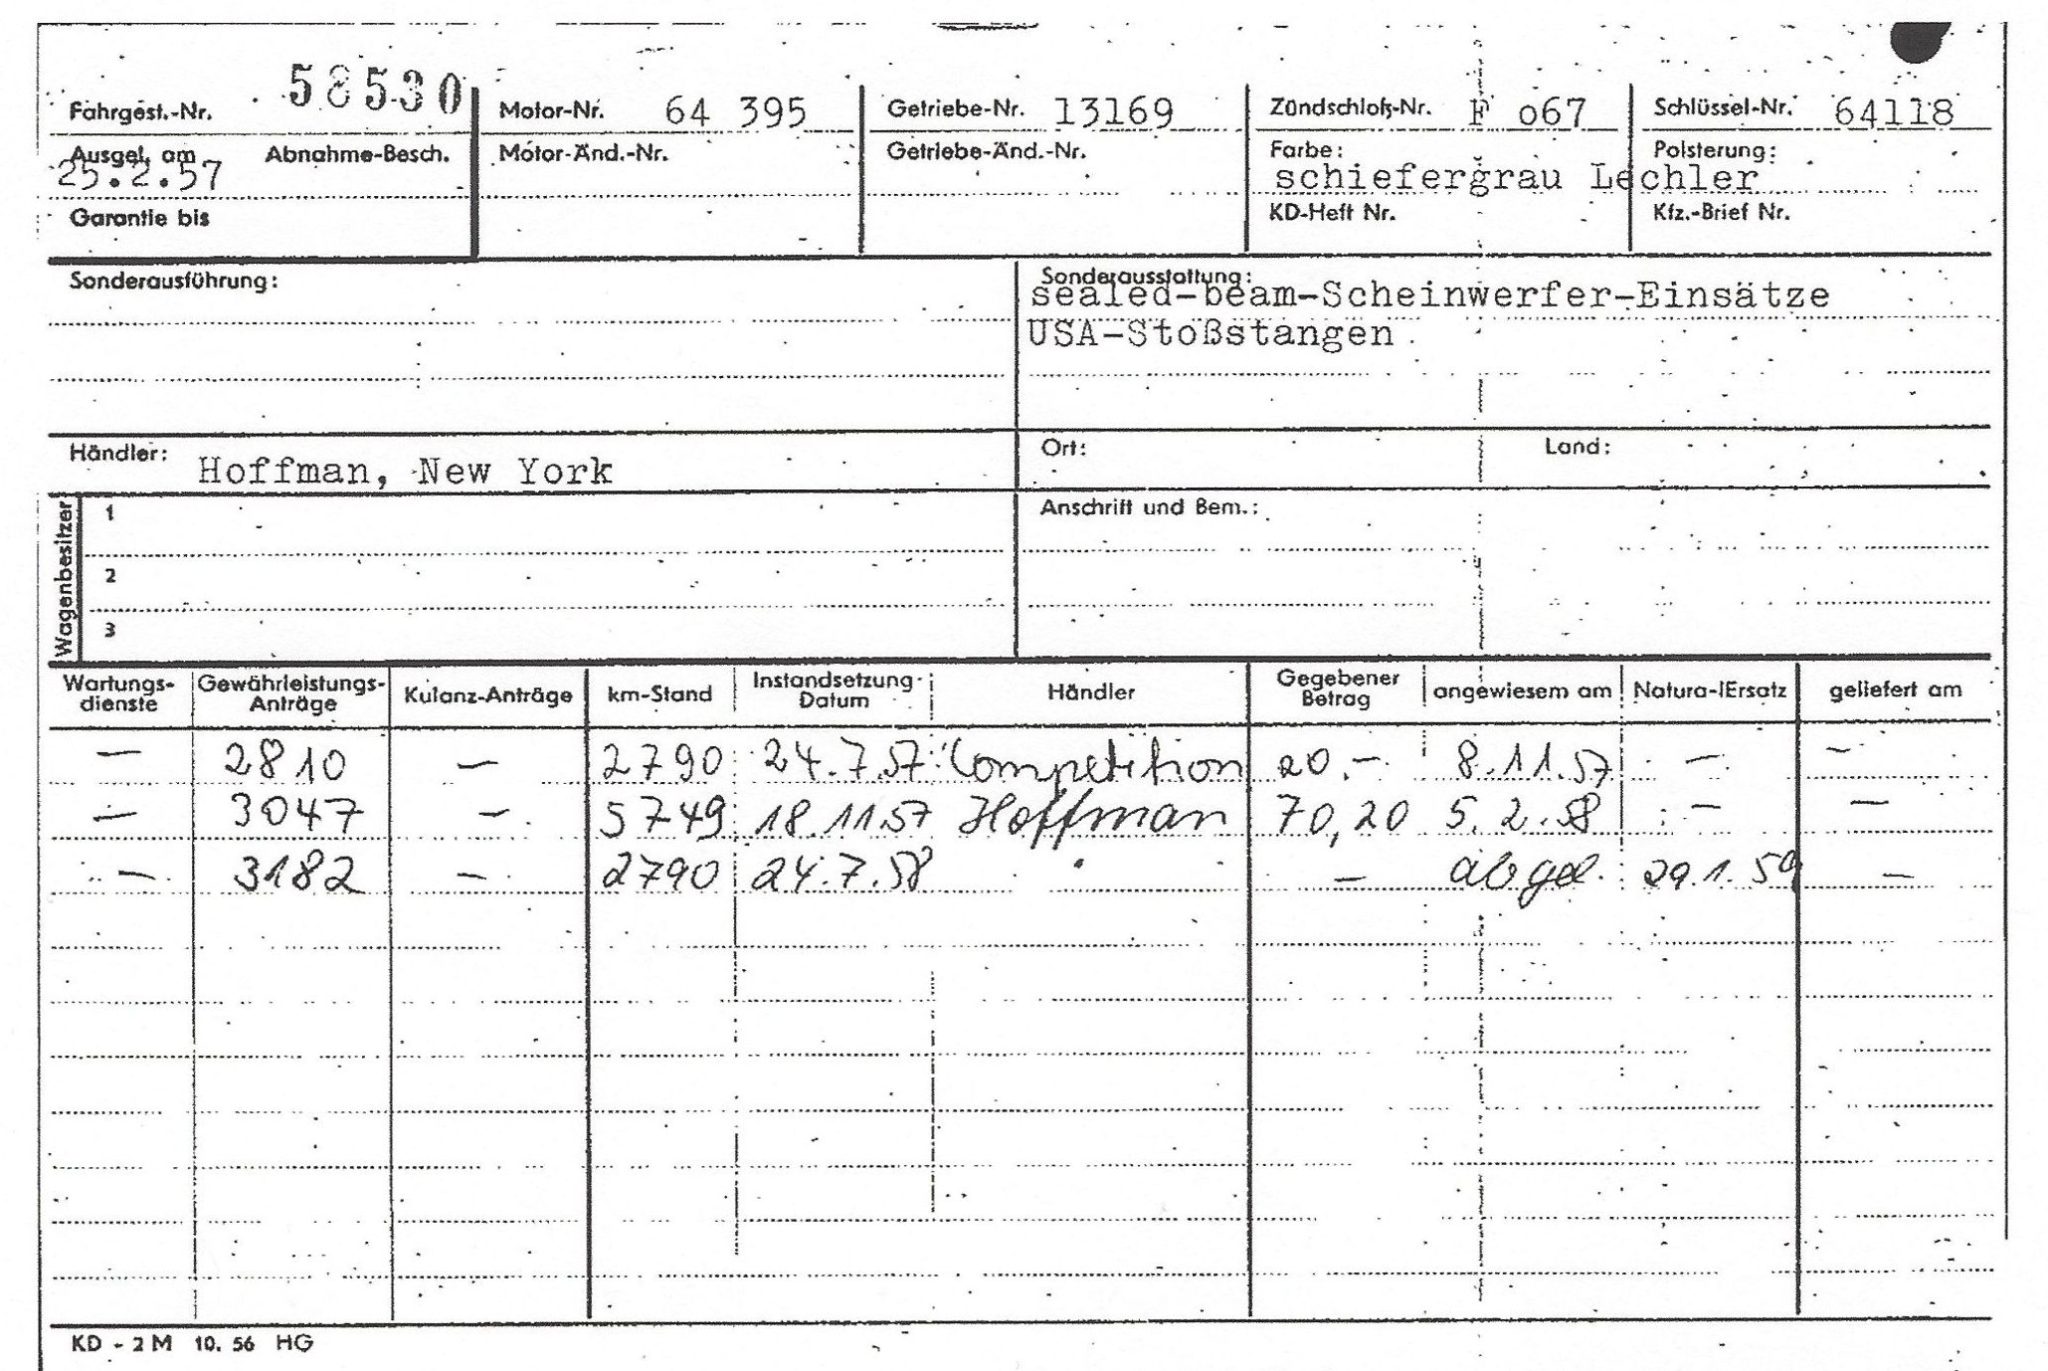 Fahrgest.-Nr. 58530 Motor-Nr. 64 395 Getriebe-Nr. 13169 Zündschloß-Nr. F o67 Schlüssel-Nr. 64118
Ausgel. am Abnahme-Besch. Motor-Änd.-Nr. Getriebe-Änd.-Nr. Farbe: Polsterung:
25.2.57 schiefergrau Lechler
Garantie bis KD-Heft Nr. Kfz.-Brief Nr.
Sonderausführung: Sonderausstattung:
sealed-beam-Scheinwerfer-Einsätze
USA-Stoßstangen
Händler: Hoffman, New York Ort: Land:
Wagenbesitzer
1 Anschrift und Bem.:
2
3
Wartungs- Gewährleistungs- Kulanz-Anträge km-Stand Instandsetzung- Händler Gegebener angewiesem am Natura-lErsatz geliefert am
dienste Anträge Datum Betrag
— 2810 — 2790 24.7.57 Competition 20.- 8.11.57 — —
— 3047 — 5749 18.11.57 Hoffman 70,20 5.2.58 — —
— 3182 — 2790 24.7.58 — abgel. 29.1.59 —
KD - 2 M 10. 56 HG